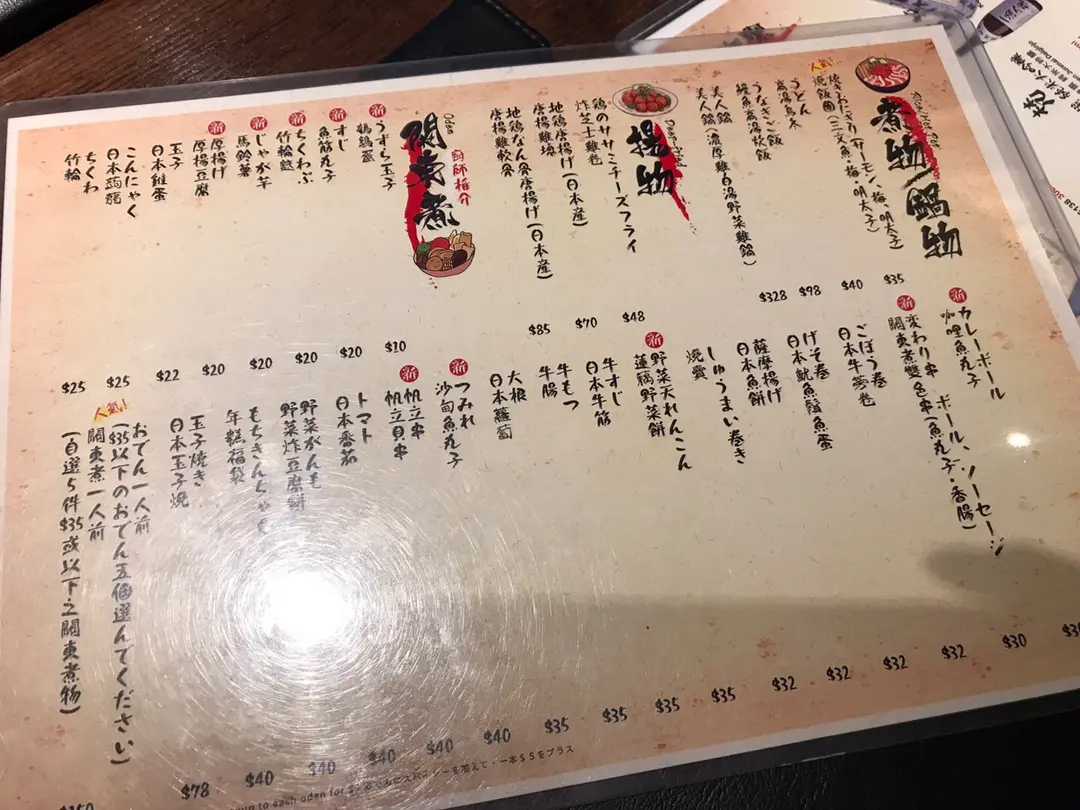 煮物／鍋物
人気!
焼きおにぎり(サーモン、梅、明太子)
燒飯團(三文魚、梅、明太子)
$35
うどん
高湯烏冬
$40
うなぎご飯
鰻魚高湯炊飯
$98
美人鍋
美人鍋(濃厚雞白湯野菜雞鍋)
$328
揚物
鶏のササミチーズフライ
炸芝士雞卷
$48
地鶏唐揚げ(日本産)
唐揚雞塊
$70
地鶏なん骨唐揚げ(日本産)
唐揚雞軟骨
$85
關東煮
Oden
廚師推介
新
うずら玉子
鵪鶉蛋
$10
新
すじ
魚筋丸子
$20
新
ちくわぶ
竹輪麩
$20
新
じゃが芋
馬鈴薯
$20
新
厚揚げ
厚揚豆腐
$20
玉子
日本雞蛋
$22
こんにゃく
日本蒟蒻
$25
ちくわ
竹輪
$25
新
カレーボール
咖哩魚丸子
$30
新
変わり串 ボール、ソーセージ
關東煮雙色串(魚丸子・香腸)
$30
ごぼう巻
日本牛蒡卷
$32
げそ巻
日本魷魚鬚魚蛋
$32
薩摩揚げ
日本魚餅
$32
しゅうまい巻き
燒賣
$32
新
野菜天れんこん
蓮藕野菜餅
$35
牛すじ
日本牛筋
$35
牛もつ
牛腸
$35
大根
日本蘿蔔
$35
新
つみれ
沙甸魚丸子
$40
新
帆立串
帆立貝串
$40
トマト
日本番茄
$40
野菜がんも
野菜炸豆腐餅
$40
もちきんちゃく
年糕福袋
$40
玉子焼き
日本玉子燒
$78
人氣!
おでん一人前
($35以下のおでん五個選んでください)
關東煮一人前
(自選5件$35或以下之關東煮物)
to each oden for $5
一本$5をプラス